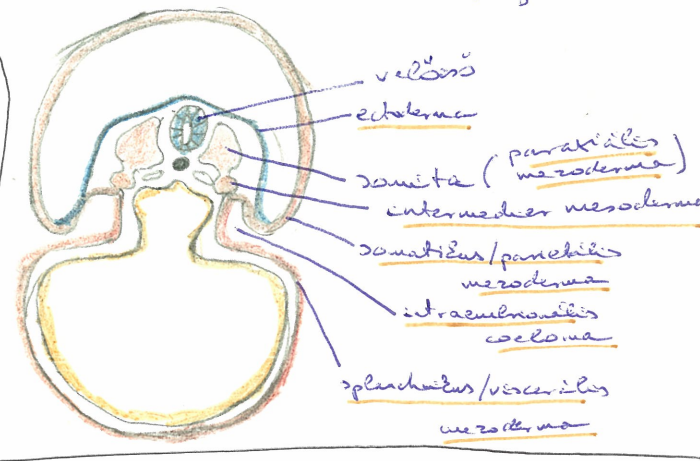 velőcső
ectoderma
somita (paraxiális
mezoderma)
intermedier mesoderma
somatikus/parietális
mezoderma
intraembrionális
coeloma
splanchnikus/viscerális
mezoderma